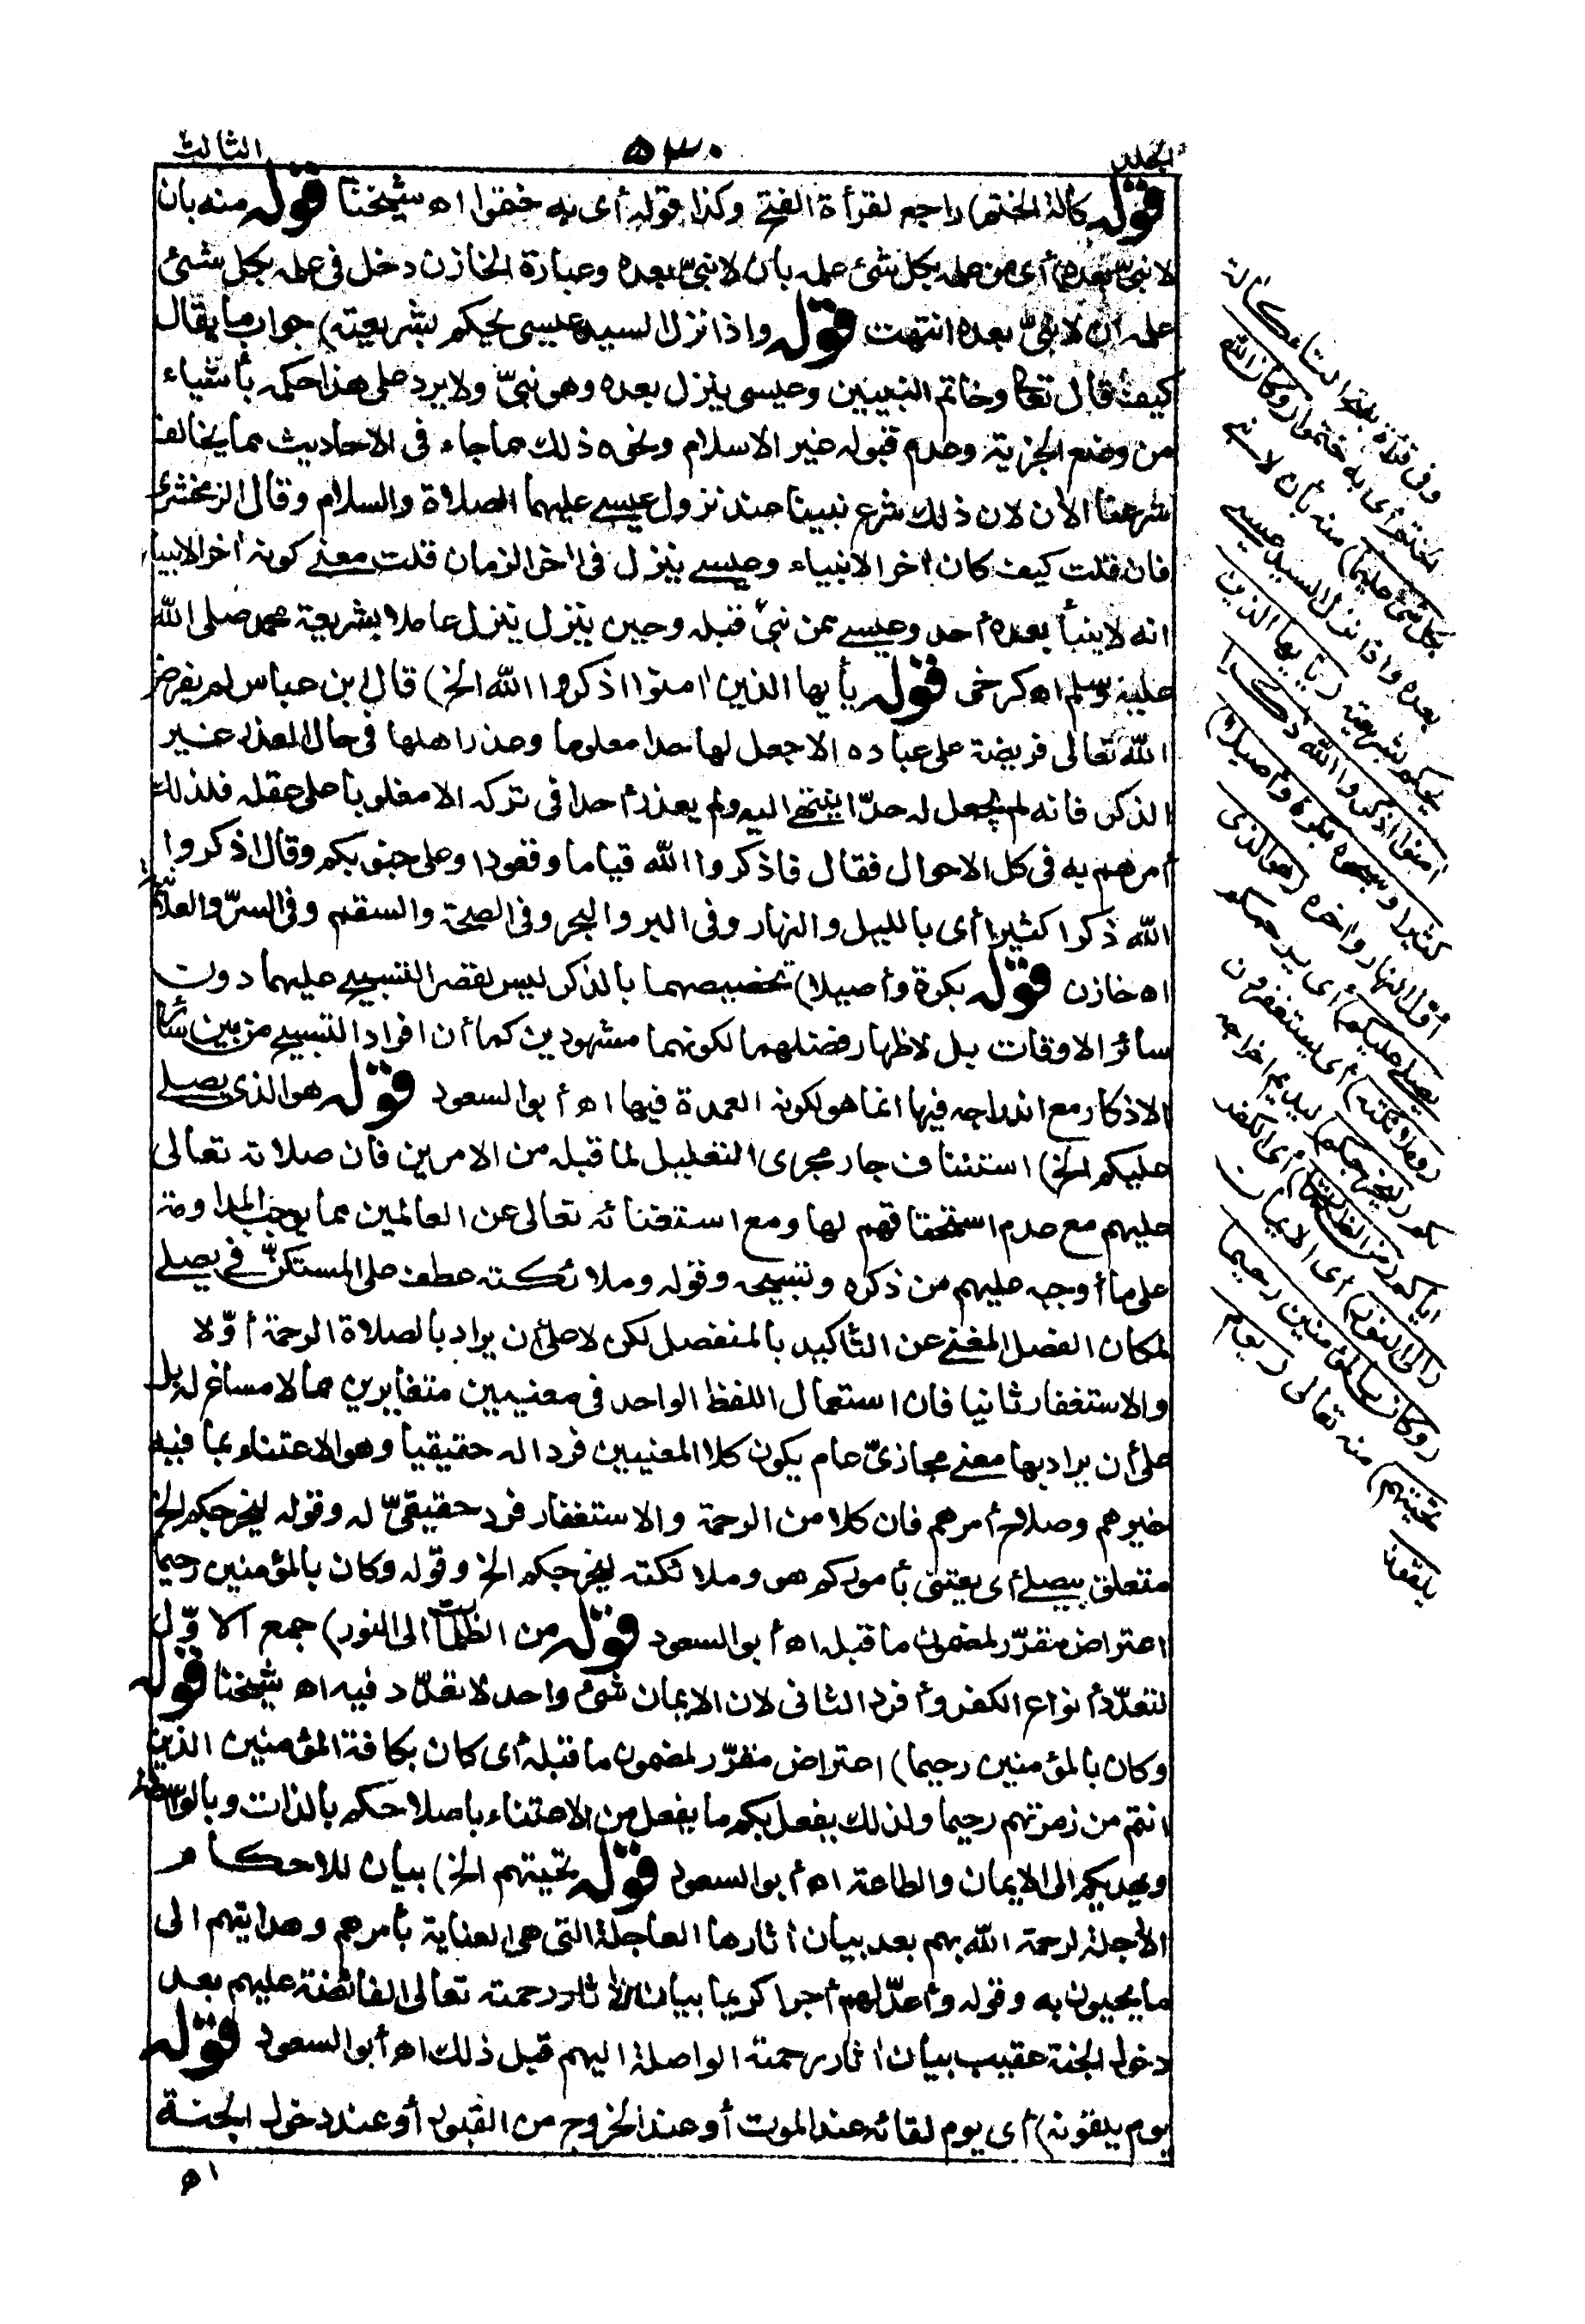 المجلد
٥٣٠
الثالث
قوله كآلة الختم) راجع لقرأة الفتح وكذا قوله أى به ختموا اه شيخنا قوله منه بان
لا نبىّ بعده) أى من علمه بكل شئ علمه بأن لا نبىّ بعده وعبارة الخازن دخل فى علمه بكل شئ
علمه ان لا نبىّ بعده انتهت قوله واذا نزل السيد عيسى يحكم بشريعته) جواب ما يقال
كيف قال تعالى وخاتم النبيين وعيسى ينزل بعده وهو نبىّ ولا يرد على هذا حكمه بأشياء
من وضع الجزية وعدم قبوله غير الاسلام ونحو ذلك مما جاء فى الاحاديث مما يخالف
شرعنا الآن لان ذلك شرع نبينا عند نزول عيسى عليهما الصلاة والسلام وقال الزمخشرى
فان قلت كيف كان آخر الانبياء وعيسى ينزل فى آخر الزمان قلت معنى كونه آخر الانبياء
انه لا ينبأ بعده أحد وعيسى ممن نبئ قبله وحين ينزل ينزل عاملا بشريعة محمد صلى الله
عليه وسلم اه كرخى قوله يأيها الذين آمنوا اذكروا الله الخ) قال ابن عباس لم يفرض
الله تعالى فريضة على عباده الا جعل لها حدا معلوما وعذر اهلها فى حال العذر غير
الذكر فانه لم يجعل له حدّا ينتهى اليه ولم يعذر أحدا فى تركه الا مغلوبا على عقله فلذلك
أمرهم به فى كل الاحوال فقال فاذكروا الله قياما وقعودا وعلى جنوبكم وقال اذكروا
الله ذكرا كثيرا أى بالليل والنهار وفى البر والبحر وفى الصحة والسقم وفى السرّ والعلانية
اه خازن قوله بكرة وأصيلا) تخصيصهما بالذكر ليس لقصر التسبيح عليهما دون
سائر الاوقات بل لاظهار فضلهما لكونهما مشهودين كما أن افراد التسبيح من بين سائر
الاذكار مع اندراجه فيها انما هو لكونه العمدة فيها اه أبو السعود قوله هو الذى يصلى
عليكم الخ) استئناف جار مجرى التعليل لما قبله من الامرين فان صلاته تعالى
عليهم مع عدم استحقاقهم لها ومع استغنائه تعالى عن العالمين مما يوجب المداومة
على ما أوجبه عليهم من ذكره وتسبيحه وقوله وملائكته عطف على المستكنّ فى يصلى
لمكان الفصل المغنى عن التاكيد بالمنفصل لكن لا على أن يراد بالصلاة الرحمة أوّلا
والاستغفار ثانيا فان استعمال اللفظ الواحد فى معنيين متغايرين مما لا مساغ له بل
على أن يراد بها معنى مجازىّ عام يكون كلا المعنيين فردا له حقيقيا وهو الاعتناء بما فيه
خيرهم وصلاح أمرهم فان كلا من الرحمة والاستغفار فرد حقيقىّ له وقوله ليخرجكم الخ
متعلق بيصلى أى يعتنى بأموركم هو وملائكته ليخرجكم الخ وقوله وكان بالمؤمنين رحيما
اعتراض مقرّر لمضمون ما قبله اه أبو السعود قوله من الظلمات الى النور) جمع الاوّل
لتعدّد أنواع الكفر وأفرد الثانى لان الايمان شئ واحد لا تعدّد فيه اه شيخنا قوله
وكان بالمؤمنين رحيما) اعتراض مقرّر لمضمون ما قبله أى كان بكافة المؤمنين الذين
انتم من زمرتهم رحيما ولذلك يفعل بكم ما يفعل من الاعتناء باصلاحكم بالذات وبالواسطة
ويهديكم الى الايمان والطاعة اه أبو السعود قوله تحيتهم الخ) بيان للاحكام
الآجلة لرحمة الله بهم بعد بيان آثارها العاجلة التى هى العناية بأمرهم وهدايتهم الى
ما يحيون به وقوله وأعدّ لهم أجرا كريما بيان لآثار رحمته تعالى الفائضة عليهم بعد
دخول الجنة عقيب بيان آثار رحمته الواصلة اليهم قبل ذلك اه أبو السعود قوله
يوم يلقونه) أى يوم لقائه عند الموت أو عند الخروج من القبور أو عند دخول الجنة
اه
وفى قراءة بفتح التاء كآلة
الختم أى به ختموا (وكان الله
بكل شئ عليما) منه بأن لا نبى
بعده واذا نزل السيد عيسى
يحكم بشريعته (يأيها الذين
آمنوا اذكروا الله ذكرا
كثيرا وسبحوه بكرة وأصيلا)
أوّل النهار وآخره (هو الذى
يصلى عليكم) أى يرحمكم
(وملائكته) أى يستغفرون
لكم (ليخرجكم) ليديم اخراجه
اياكم (من الظلمات) أى الكفر
(الى النور) أى الايمان
(وكان بالمؤمنين رحيما
تحيتهم) منه تعالى (يوم
يلقونه